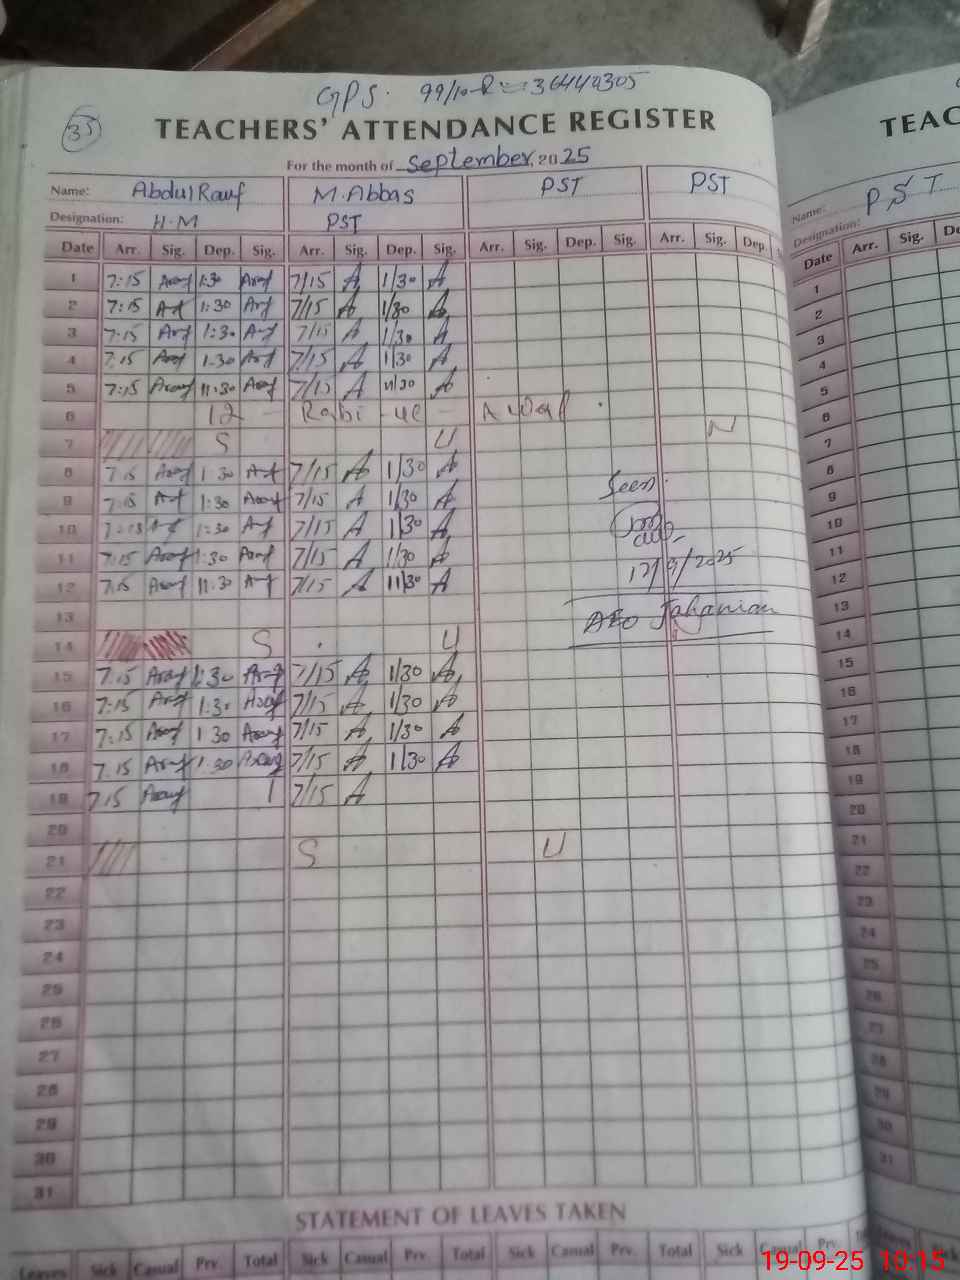 GPS. 99/10-R = 36440305
35
TEACHERS' ATTENDANCE REGISTER
For the month of September, 2025
Name: Abdul Rauf M. Abbas PST PST
Designation: H.M PST
Date Arr. Sig. Dep. Sig. Arr. Sig. Dep. Sig. Arr. Sig. Dep. Sig. Arr. Sig. Dep. S
1 7:15 1:30 7/15 A 1/30 A
2 7:15 1:30 7/15 A 1/30 A
3 7:15 1:30 7/15 A 1/30 A
4 7:15 1:30 7/15 A 1/30 A
5 7:15 11:30 7/15 A 11/30 A
6 12 - Rabi - ul - Awal .
7 S U N
8 7:15 1:30 7/15 A 1/30 A
9 7:15 1:30 7/15 A 1/30 A
10 7:15 1:30 7/15 A 1/30 A
11 7:15 1:30 7/15 A 1/30 A
12 7:15 11:30 7/15 A 11/30 A
13
14 S U
15 7:15 1:30 7/15 A 1/30 A
16 7:15 1:30 7/15 A 1/30 A
17 7:15 1:30 7/15 A 1/30 A
18 7:15 1:30 7/15 A 1/30 A
19 7:15 7/15 A
20
21 S U
22
23
24
25
26
27
28
29
30
31
Seen.
17/9/2025
AEO Jahanian
STATEMENT OF LEAVES TAKEN
Leaves Sick Casual Prv. Total Sick Casual Prv. Total Sick Casual Prv. Total Sick Casual Prv.
TEAC
Name: PST
Designation:
Date Arr. Sig. De
1
2
3
4
5
6
7
8
9
10
11
12
13
14
15
16
17
18
19
20
21
22
23
24
25
26
27
28
29
30
31
19-09-25 10:15